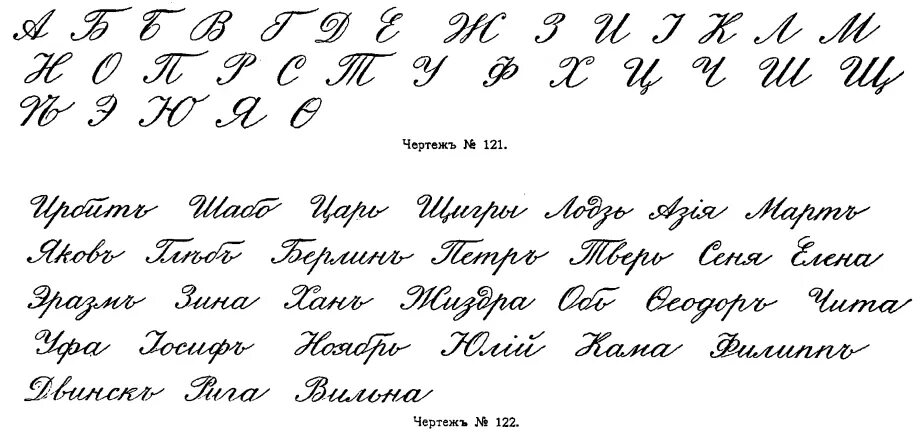 А Б Б В Г Д Е Ж З И І К Л М
Н О П Р С Т У Ф Х Ц Ч Ш Щ
Ѣ Э Ю Я Ѳ
Чертежъ № 121.
Ирбитъ Шабо Царь Щигры Лодзь Азія Мартъ
Яковъ Глѣбъ Берлинъ Петръ Тверь Сеня Елена
Эразмъ Зина Ханъ Жиздра Обь Ѳеодоръ Чита
Уфа Іосифъ Ноябрь Юлій Кама Филиппъ
Двинскъ Рига Вильна
Чертежъ № 122.